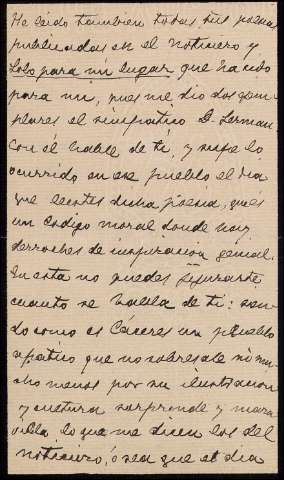 He leido tambien todas tus poesias
publicadas en el Noticiero y
Solo para mi lugar que ha sido
para mi, pues me dio dos ejem-
plares el simpatico D. German.
Con él hablé de ti, y supe lo
ocurrido en ese pueblo el dia
que leistes dicha poesia, que és
un codigo moral donde hay
derroches de inspiracion genial.
En esta no puedes figurarte
cuanto se habla de ti: sien-
do como es Cáceres un pueblo
apatico que no sobresale ni mu-
cho menos por su ilustracion
y cultura sorprende y mara-
villa lo que me dicen los del
noticiero, ó sea que el dia